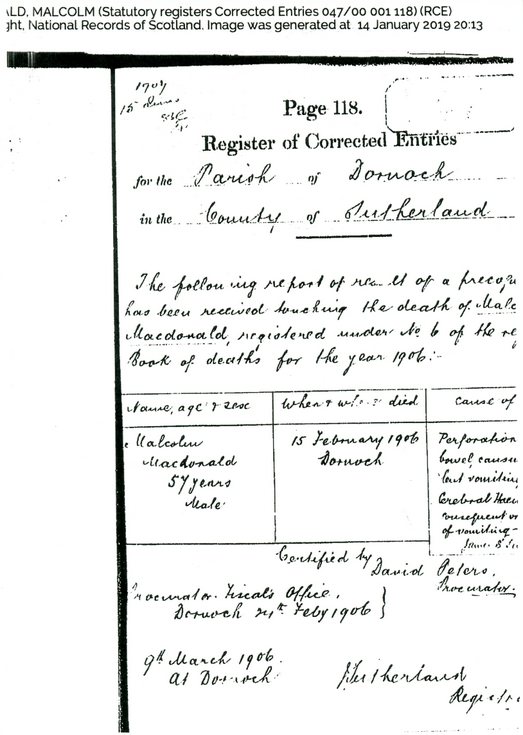 ALD, MALCOLM (Statutory registers Corrected Entries 047/00 001 118) (RCE)
ght, National Records of Scotland. Image was generated at 14 January 2019 20:13
Page 118.
Register of Corrected Entries
for the Parish of Dornoch
in the County of Sutherland
The following report of result of a precogn
has been received touching the death of Malc
Macdonald, registered under No 6 of the re
Book of deaths for the year 1906:-
Name, age & sex
When & where died
Cause of
Malcolm
Macdonald
57 years
Male
15 February 1906
Dornoch
Perforation
bowel, causin
but vomiting
Cerebral Haem
consequent
of vomiting-
Certified by
David Peters,
Procurator.
Procurator. Fiscal's Office,
Dornoch 24th Feby 1906
9th March 1906.
At Dornoch
Sutherland
Registr